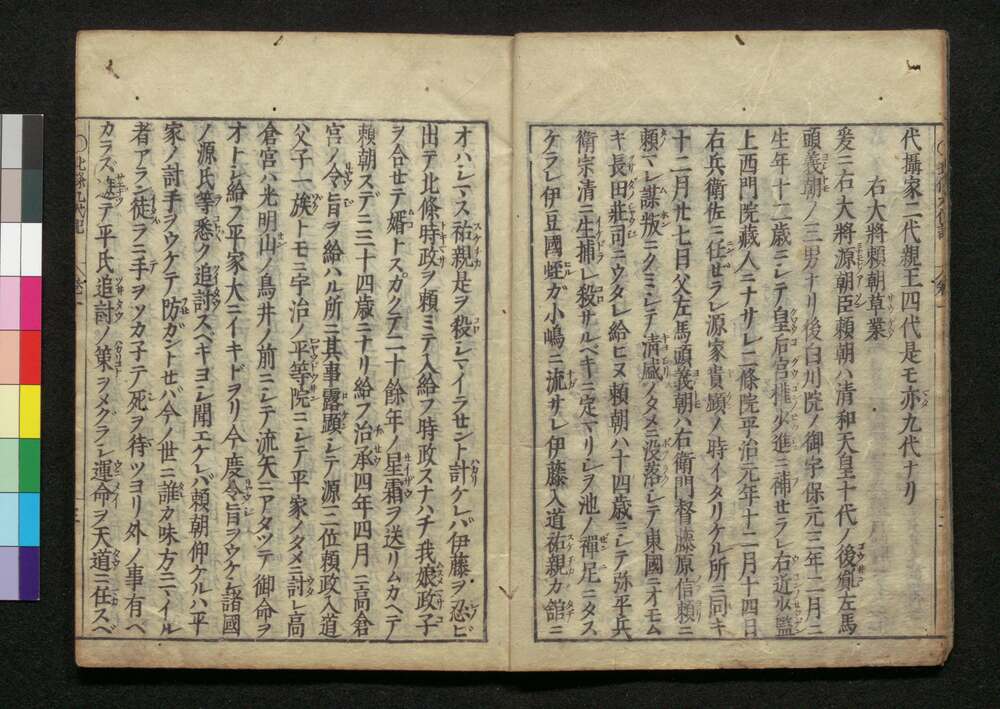 代攝家二代親王四代是モ亦九代ナリ
右大將頼朝草業
爰ニ右大將源朝臣頼朝ハ清和天皇十代ノ後胤左馬
頭義朝ノ三男ナリ後白川院ノ御宇保元三年二月ニ
生年十二歳ニシテ皇后宮權少進ニ補セラレ右近將監
上西門院藏人ニナサレ二條院平治元年十二月十四日
右兵衛佐ニ任ゼラレ源家貴顯ノ時イタリケル所ニ同キ
十二月廿七日父左馬頭義朝ハ右衛門督藤原信頼ニ
頼マレ謀叛ニクミシテ清盛ノタメニ没落シテ東國ニオモム
キ長田莊司ニウタレ給ヒヌ頼朝ハ十四歳ニシテ弥平兵
衛宗清ニ生捕レ殺サルベキニ定マリシヲ池ノ禪尼ニタス
ケラレ伊豆國蛭ガ小嶋ニ流サレ伊藤入道祐親カ舘ニ
オハシマス祐親是ヲ殺シマイラセント計ケレバ伊藤ヲ忍ビ
出テ北條時政ヲ頼ミテ入給フ時政スナハチ我娘政子
ヲ合セテ婿トスカクテ二十餘年ノ星霜ヲ送リムカヘテ
頼朝スデニ三十四歳ニナリ給フ治承四年四月ニ高倉
宮ノ令旨ヲ給ハル所ニ其事露顯シテ源三位頼政入道
父子一族トモニ宇治ノ平等院ニシテ平家ノタメニ討レ高
倉宮ハ光明山ノ鳥井ノ前ニシテ流矢ニアタツテ御命ヲ
オトシ給フ平家大ニイキドヲリ今度令旨ヲウケシ諸國
ノ源氏等悉ク追討スベキヨシ聞エケレバ頼朝仰ケルハ平
家ノ討手ヲウケテ防ガントセバ今ノ世ニ誰カ味方ニマイル
者アラン徒ラニ手ヲツカ子テ死ヲ待ツヨリ外ノ事有ヘ
カラズ遮テ平氏追討ノ策ヲメグラシ運命ヲ天道ニ任スベ
北條九代記